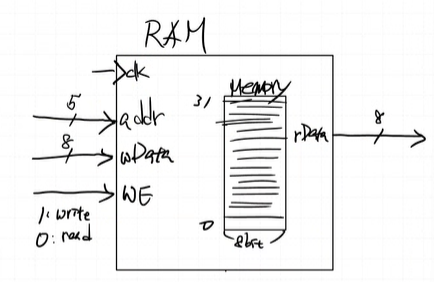 RAM
clk
5
addr
8
wData
WE
1: write
0: read
31
Memory
0
8bit
rData
8